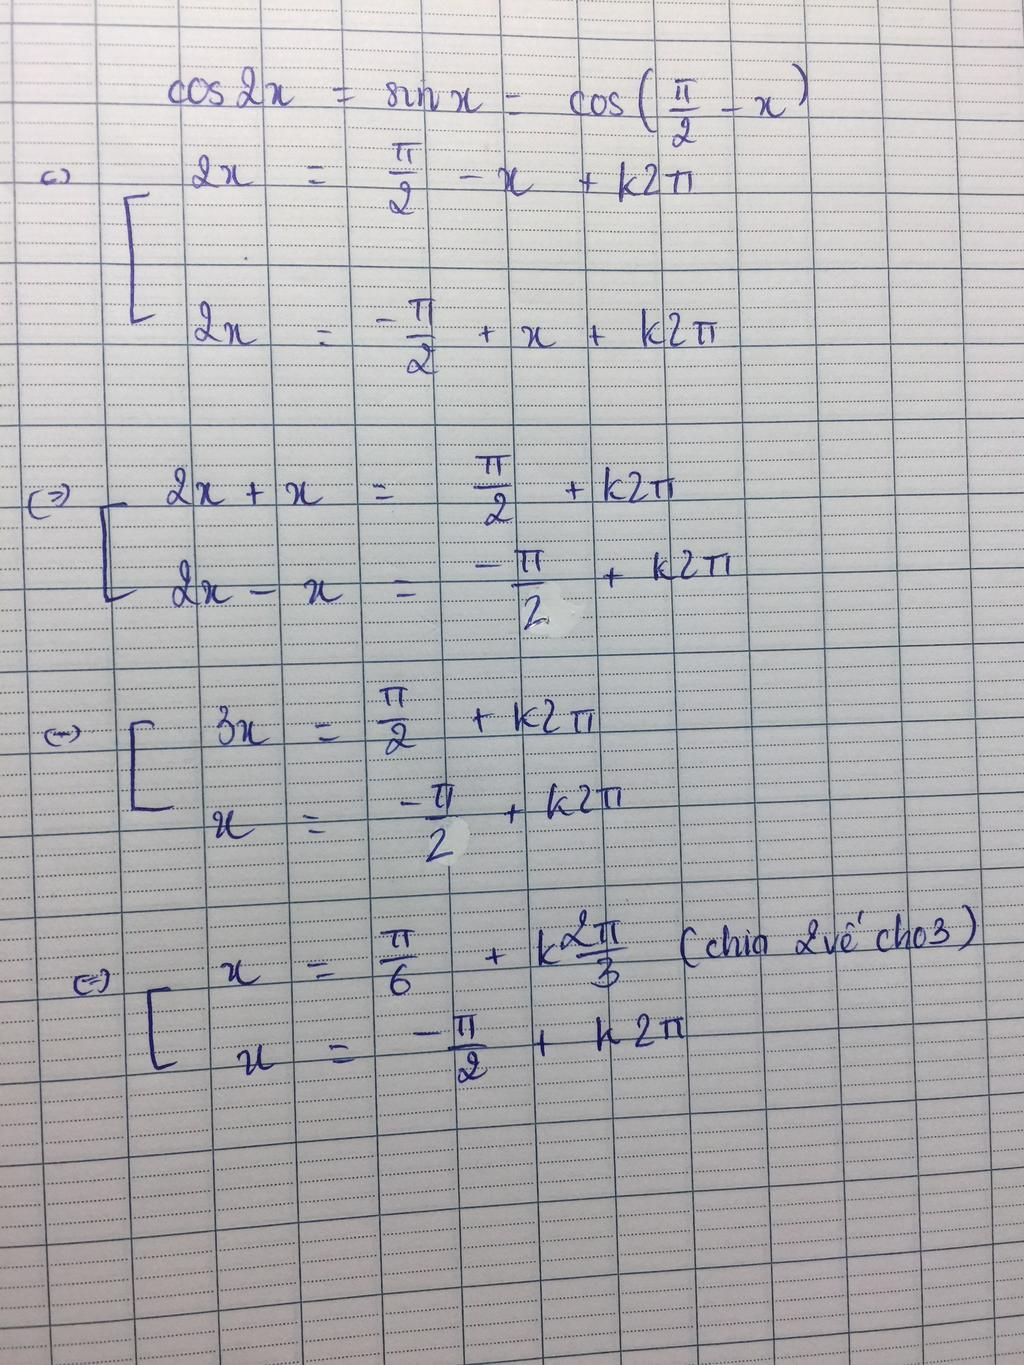 cos2x = sinx = cos(π/2 - x)
<=> [ 2x = π/2 - x + k2π
2x = -π/2 + x + k2π
<=> [ 2x + x = π/2 + k2π
2x - x = -π/2 + k2π
<=> [ 3x = π/2 + k2π
x = -π/2 + k2π
<=> [ x = π/6 + k2π/3 (chia 2 vế cho 3)
x = -π/2 + k2π